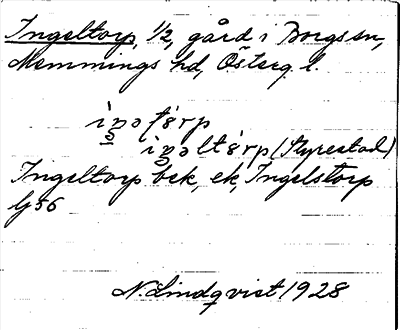 Ingeltorp, 1/2, gård i Borgs sn,
Memmings hd, Österg. l.
iŋəltórp (Styrestad)
Ingeltorp bek, ek, Ingelstorp
G 56
N. Lindqvist 1928